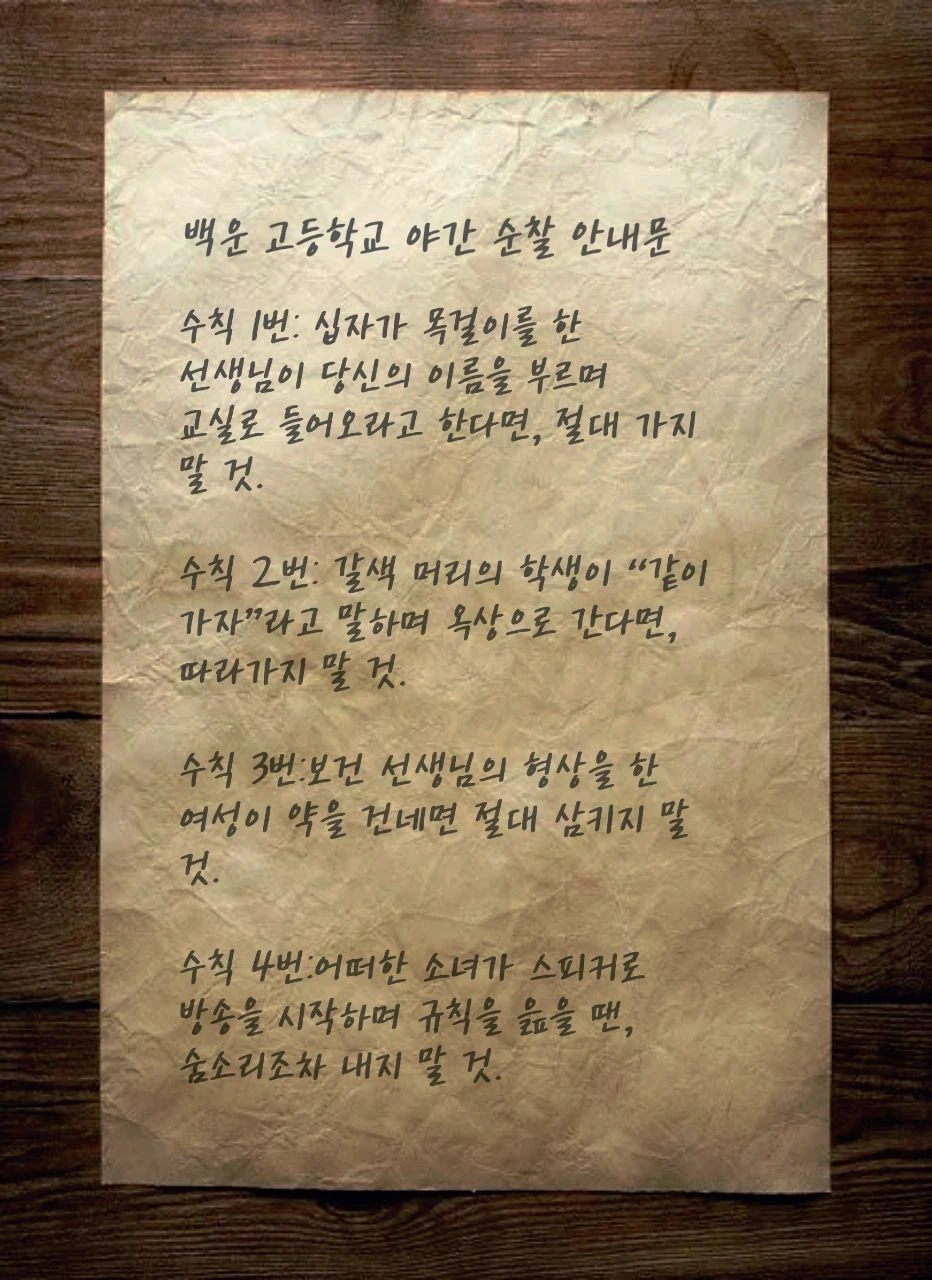 백운 고등학교 야간 순찰 안내문
수칙 1번: 십자가 목걸이를 한
선생님이 당신의 이름을 부르며
교실로 들어오라고 한다면, 절대 가지
말 것.
수칙 2번: 갈색 머리의 학생이 “같이
가자”라고 말하며 옥상으로 간다면,
따라가지 말 것.
수칙 3번:보건 선생님의 형상을 한
여성이 약을 건네면 절대 삼키지 말
것.
수칙 4번:어떠한 소녀가 스피커로
방송을 시작하며 규칙을 읊을 땐,
숨소리조차 내지 말 것.